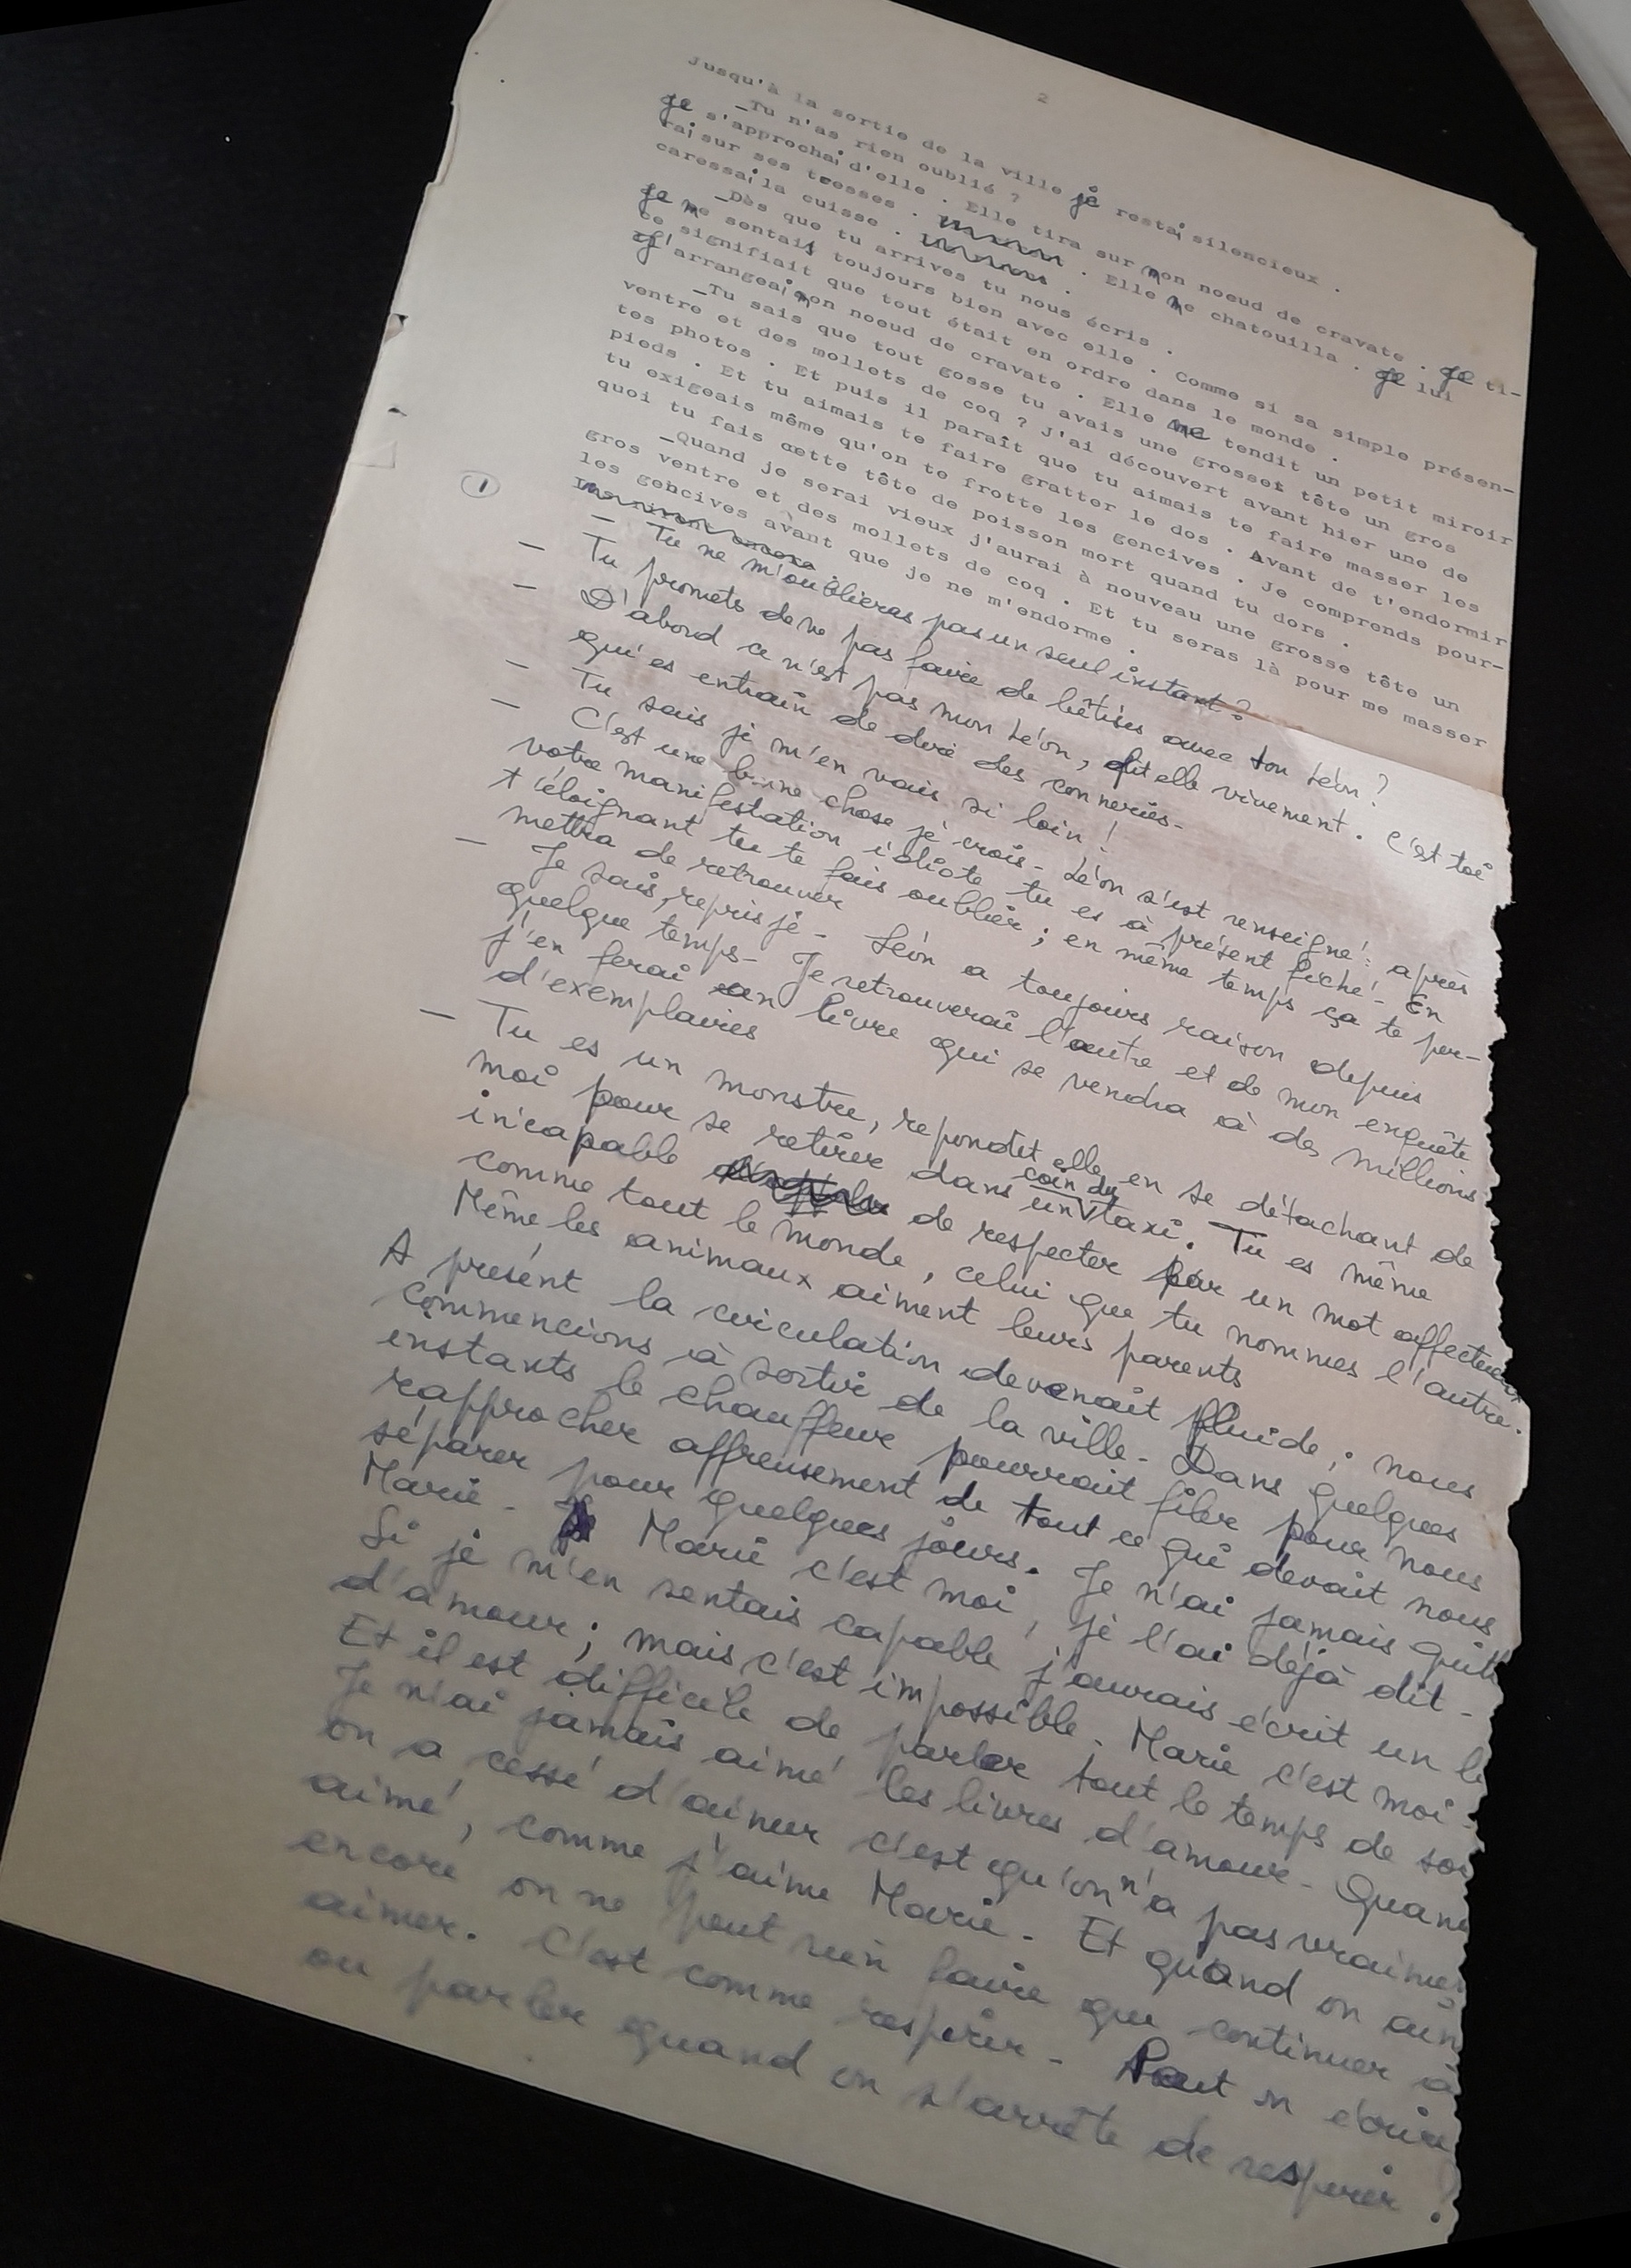 2
Jusqu'à la sortie de la ville je restai silencieux .
_Tu n'as rien oublié ?
Je s'approchai d'elle . Elle tira sur mon noeud de cravate . Je ti-
rai sur ses tresses . Elle me chatouilla . Je lui
caressai la cuisse .
_Dès que tu arrives tu nous écris .
Je me sentais toujours bien avec elle . Comme si sa simple présen-
ce signifiait que tout était en ordre dans le monde .
J'arrangeai mon noeud de cravate . Elle me tendit un petit miroir
_Tu sais que tout gosse tu avais une grosse tête un gros
ventre et des mollets de coq ? J'ai découvert avant hier une de
tes photos . Et puis il paraît que tu aimais te faire masser les
pieds . Et tu aimais te faire gratter le dos . Avant de t'endormir
tu exigeais même qu'on te frotte les gencives . Je comprends pour-
quoi tu fais cette tête de poisson mort quand tu dors .
_Quand je serai vieux j'aurai à nouveau une grosse tête un
gros ventre et des mollets de coq . Et tu seras là pour me masser
les gencives avant que je ne m'endorme .
1
- Tu ne m'oublieras pas un seul instant ?
- Tu promets de ne pas faire de bêtises avec ton Léon ?
- D'abord ce n'est pas mon Léon, dit elle vivement. C'est toi
qui es entrain de dire des conneries-
- Tu sais je m'en vais si loin !
- C'est une bonne chose je crois- Léon s'est renseigné : après
votre manifestation idiote tu es à présent fiché- En
t'éloignant tu te fais oublier ; en même temps ça te per-
mettra de retrouver
- Je sais, repris je - Léon a toujours raison depuis
quelque temps- Je retrouverai l'autre et de mon enquête
j'en ferai un livre qui se vendra à des millions
d'exemplaires
- Tu es un monstre, repondit elle, en se détachant de
moi pour se retirer dans un coin du taxi. Tu es même
incapable de respecter par un mot affectueux
comme tout le monde, celui que tu nommes l'autre.
Même les animaux aiment leurs parents
A présent la circulation devenait fluide ; nous
commencions à sortir de la ville- Dans quelques
instants le chauffeur pourrait filer pour nous
rapprocher affreusement de tout ce qui devait nous
séparer pour quelques jours. Je n'ai jamais quitté
Marie - Marie c'est moi, je l'ai déjà dit -
Si je m'en sentais capable j'aurais écrit un
d'amour ; mais c'est impossible. Marie c'est moi -
Et il est difficile de parler tout le temps de
Je n'ai jamais aimé les livres d'amour- Quand
on a cessé d'aimer c'est qu'on n'a pas
aimé, comme j'aime Marie - Et quand on
encore on ne peut rien faire que continuer à
aimer. C'est comme respirer - Peut on écrire
ou parler quand on s'arrête de respirer ?